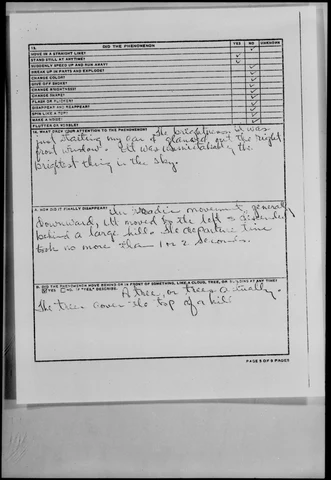 13. DID THE PHENOMENON YES NO UNKNOWN
MOVE IN A STRAIGHT LINE? ✓
STAND STILL AT ANYTIME? ✓
SUDDENLY SPEED UP AND RUN AWAY? ✓
BREAK UP IN PARTS AND EXPLODE? ✓
CHANGE COLOR? ✓
GIVE OFF SMOKE? ✓
CHANGE BRIGHTNESS? ✓
CHANGE SHAPE? ✓
FLASH OR FLICKER? ✓
DISAPPEAR AND REAPPEAR? ✓
SPIN LIKE A TOP? ✓
MAKE A NOISE? ✓
FLUTTER OR WOBBLE? ✓
14. WHAT DREW YOUR ATTENTION TO THE PHENOMENON? The brightness. I was
just starting my car & glanced out the right
front window. It was unmistakably the
brightest thing in the sky.
A. HOW DID IT FINALLY DISAPPEAR? In steady movement, generally
downward, it moved to the left & descended
behind a large hill. The departure time
took no more than 1 or 2 seconds.
B. DID THE PHENOMENON MOVE BEHIND OR IN FRONT OF SOMETHING, LIKE A CLOUD, TREE, OR BUILDING AT ANY TIME?
YES NO. IF "YES" DESCRIBE. A tree, or trees actually.
The trees cover the top of a hill
PAGE 5 OF 9 PAGES